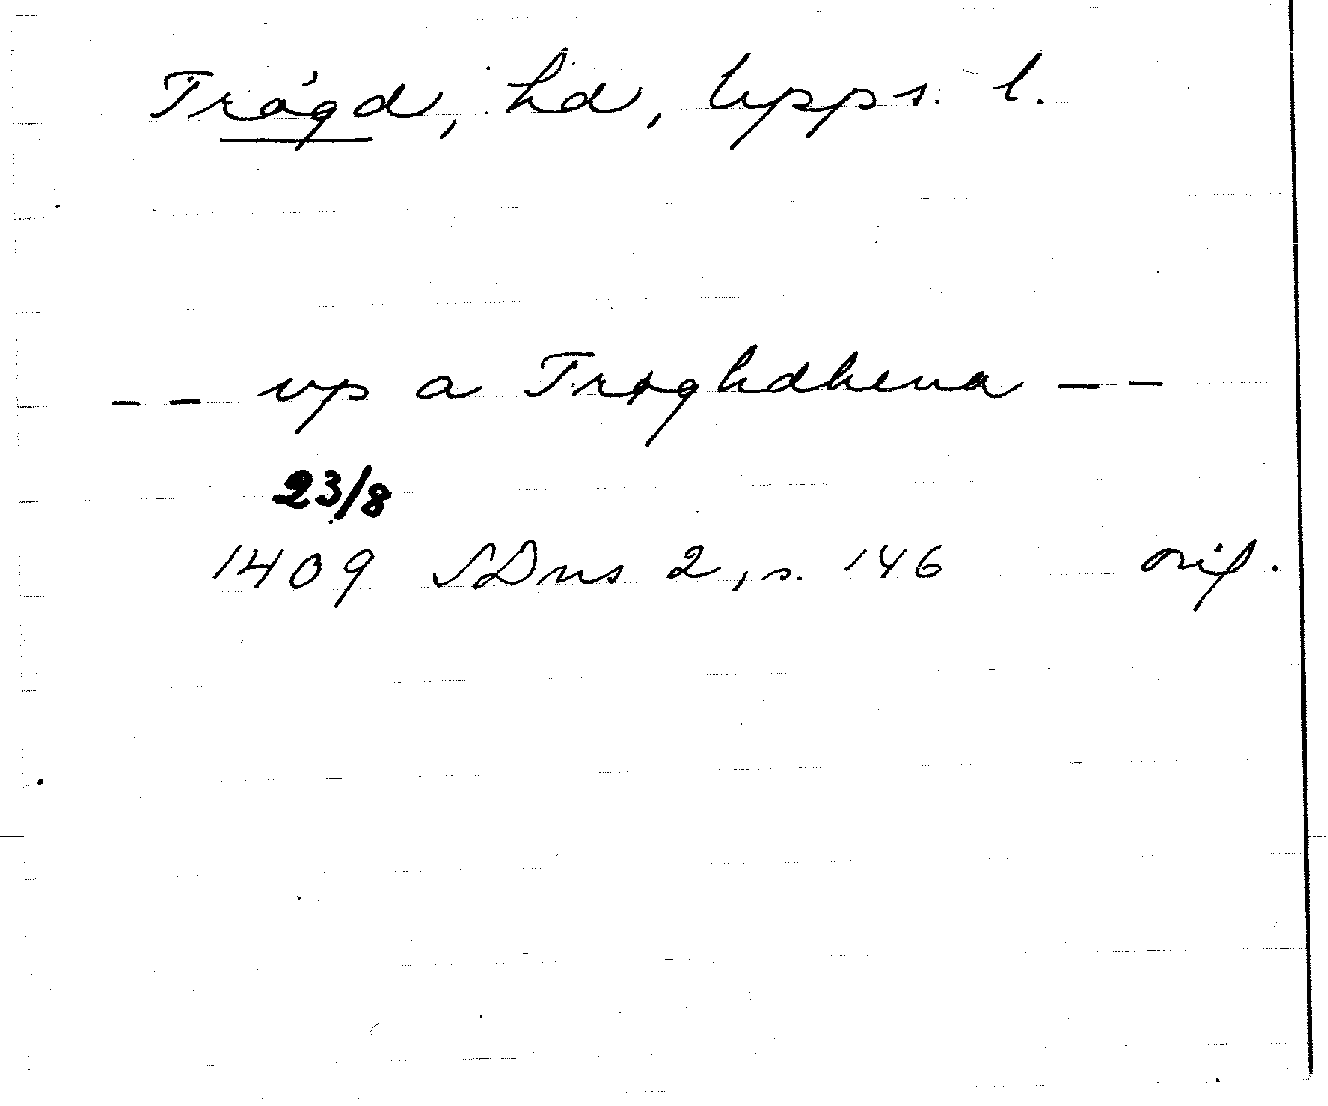 Trögd, hd, Upps. l.
-- vp a Trøghdhena --
23/8
1409 SDns 2, s. 146 orig.